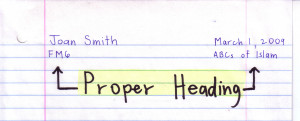 Joan Smith March 1, 2009
FM6 ABCs of Islam
Proper Heading